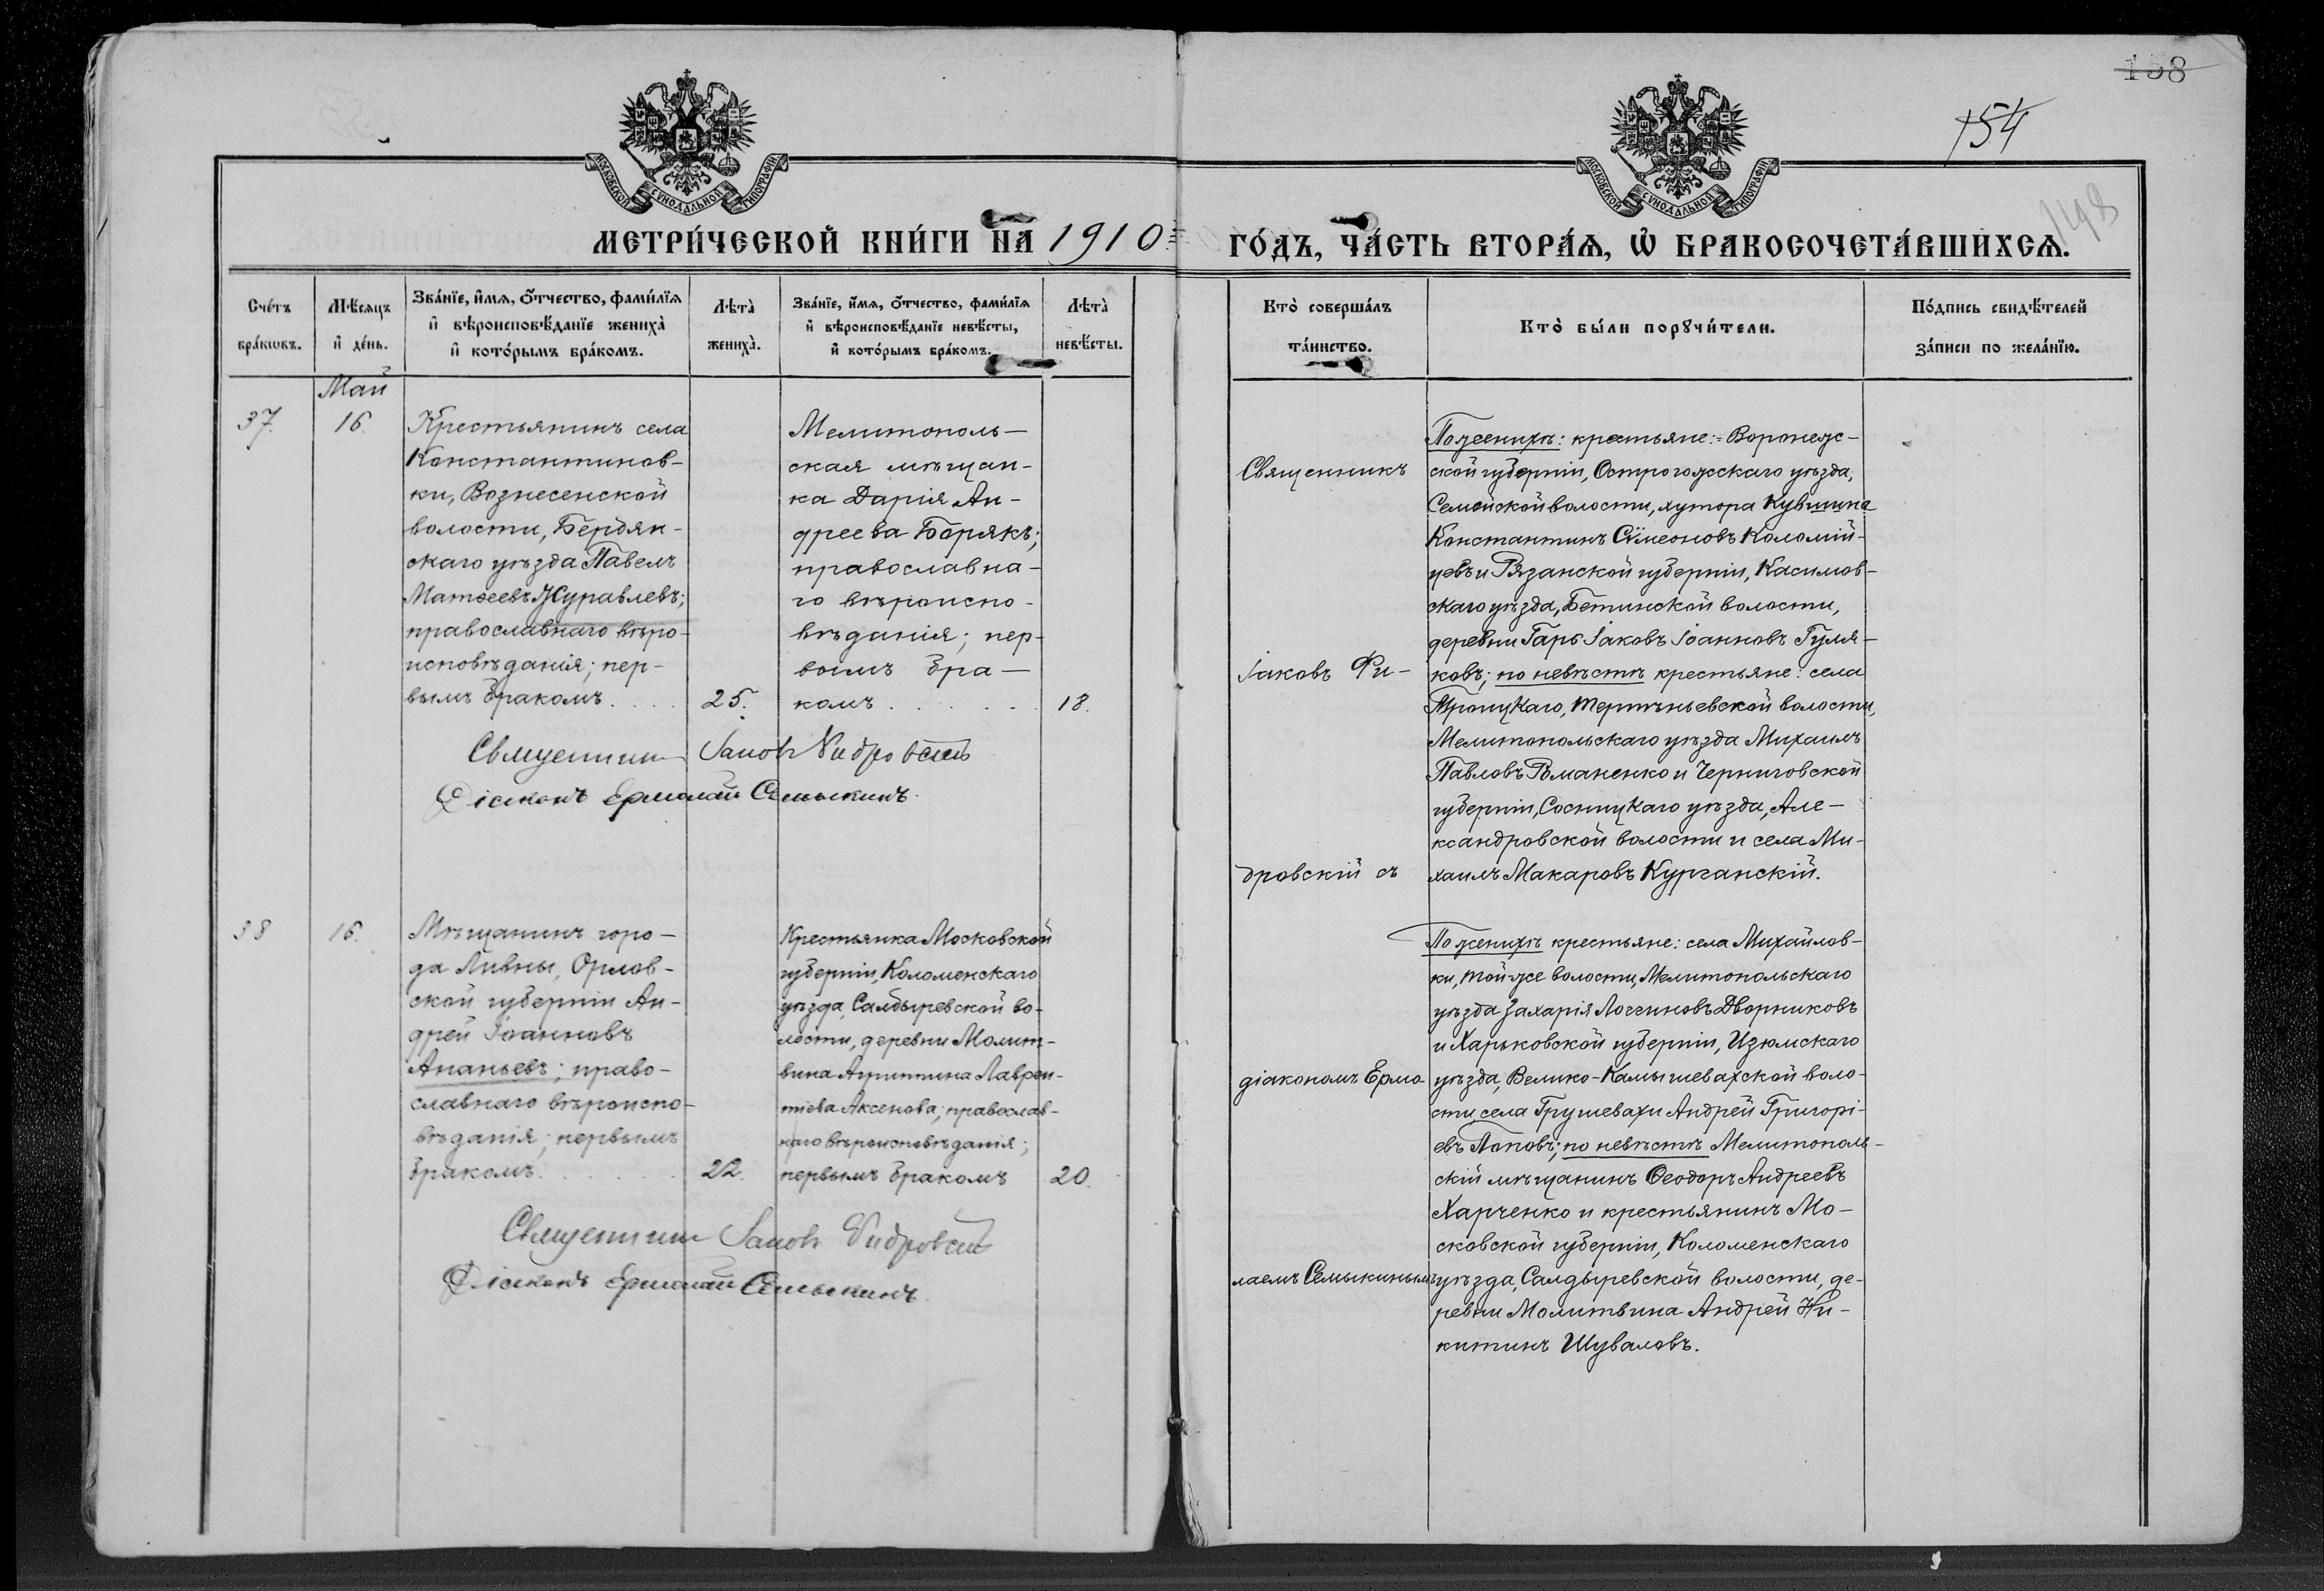 158
154
148
МОСКОВСКОЙ СѴНОДАЛЬНОЙ ТИПОГРАФІИ
МОСКОВСКОЙ СѴНОДАЛЬНОЙ ТИПОГРАФІИ
МЕТРИ́ЧЕСКОЙ КНИ́ГИ НА 1910 ГО́ДЪ, ЧА́СТЬ ВТОРА́Ѧ, Ѡ БРАКОСОЧЕТА́ВШИХСѦ.
Сче́тъ
бра́кѡвъ.
Мѣ́сяцъ
и҆ де́нь.
Зва́нїе, и҆́мѧ, ѻ҆́тчество, фами́лїѧ
и҆ вѣроисповѣ́данїе жениха̀
и҆ кото́рымъ бра́комъ.
Лѣта̀
жениха̀.
Зва́нїе, и҆́мѧ, ѻ҆́тчество, фами́лїѧ
и҆ вѣроисповѣ́данїе невѣ́сты,
и҆ кото́рымъ бра́комъ.
Лѣта̀
невѣ́сты.
Кто̀ соверша́лъ
та́инство.
Кто̀ бы́ли порꙋчи́тели.
По́дпись свидѣ́телей
за́писи по жела́нїю.
Май
37.
16.
Крестьянинъ села
Константинов-
ки, Вознесенской
волости, Бердян-
скаго уѣзда Павелъ
Матѳеевъ Журавлевъ;
православнаго вѣро-
исповѣданія; пер-
вымъ бракомъ....
25.
Мелитополь-
ская мѣщан-
ка Дарія Ан-
дреева Борякъ;
православна-
го вѣроиспо-
вѣданія; пер-
вымъ бра-
комъ......
18.
Священникъ Іаковъ Фидровскій
Діаконъ Ермолай Семыкинъ.
Священникъ
Іаковъ Фи-
дровскій съ
По женихѣ: крестьяне:- Воронеж-
ской губерніи, Острогожскаго уѣзда,
Семейской волости, хутора Кувшина
Константинъ Сѵмеоновъ Коломій-
цевъ и Рязанской губерніи, Касимов-
скаго уѣзда, Бетинской волости,
деревни Гарь Іаковъ Іоанновъ Гуля-
ковъ; по невѣстѣ крестьяне: села
Троицкаго, Терпѣньевской волости,
Мелитопольскаго уѣзда Михаилъ
Павловъ Романенко и Черниговской
губерніи, Сосницкаго уѣзда, Але-
ксандровской волости и села Ми-
хаилъ Макаровъ Курганскій.
38
16.
Мѣщанинъ горо-
да Ливны, Орлов-
ской губерніи Ан-
дрей Іоанновъ
Ананьевъ; право-
славнаго вѣроиспо-
вѣданія; первымъ
бракомъ.......
22.
Крестьянка Московской
губерніи, Коломенскаго
уѣзда, Салдыревской во-
лости, деревни Молит-
вина Агриппина Лаврен-
тіева Аксенова; православ-
наго вѣроисповѣданія;
первымъ бракомъ
20.
Священникъ Іаковъ Фидровскій
Діаконъ Ермолай Семыкинъ.
діакономъ Ермо-
лаемъ Семыкинымъ
По женихѣ крестьяне: села Михайлов-
ки, той-же волости, Мелитопольскаго
уѣзда Захарія Логгиновъ Дворниковъ
и Харьковской губерніи, Изюмскаго
уѣзда, Велико-Камышевахской воло-
сти, села Грушевахи Андрей Григорі-
евъ Поповъ; по невѣстѣ Мелитополь-
скій мѣщанинъ Ѳеодоръ Андреевъ
Харченко и крестьянинъ Мо-
сковской губерніи, Коломенскаго
уѣзда, Салдыревской волости, де-
ревни Молитвина Андрей Ни-
китинъ Шуваловъ.